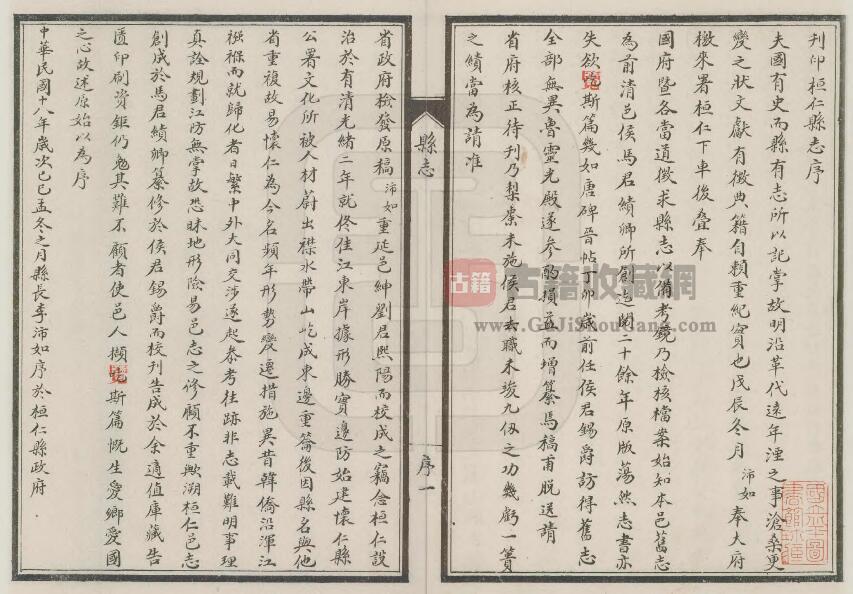 刊印桓仁縣志序
夫國有史而縣有志所以記掌故明沿革代遠年湮之事滄桑更
變之狀文獻有徵典籍自賴重紀實也戊辰冬月沛如奉大府
檄來署桓仁下車後疊奉
國府暨各當道徵求縣志以備考鏡乃檢核檔案始知本邑舊志
為前清邑侯馬君績卿所創迄閱二十餘年原版蕩然志書亦
失欲覓斯篇幾如唐碑晉帖丁卯歲前任侯君錫爵訪得舊志
全部無異魯靈光殿遂參酌損益而增纂馬稿甫脫送請
省府核正待刊乃梨棗未施侯君去職未竣九仞之功幾虧一簣
之績當為請准
縣志
序一
省政府檢發原稿沛如重延邑紳劉君熙陽而校成之竊念桓仁設
治於有清光緒二年就佟佳江東岸據形勝實邊防始建懷仁縣
公署文化所被人材蔚出襟水帶山屹成東邊重籥後因縣名與他
省重複故易懷仁為今名頻年形勢變遷措施異昔韓僑沿渾江
襁褓而就歸化者日繁中外大同交涉遂起叅考往跡非志載難明事理
真詮規劃江防無掌故恐昧地形險易邑志之修顧不重歟溯桓仁邑志
創成於馬君績卿纂修於侯君錫爵而校刊告成於余適值庫藏告
匱印刷資鉅仍勉其難不顧者使邑人擷覽斯篇慨生愛鄉愛國
之心故述原始以為序
中華民國十八年歲次己巳孟冬之月縣長李沛如序於桓仁縣政府
古籍
古籍收藏網
www.GuJiShouCang.com